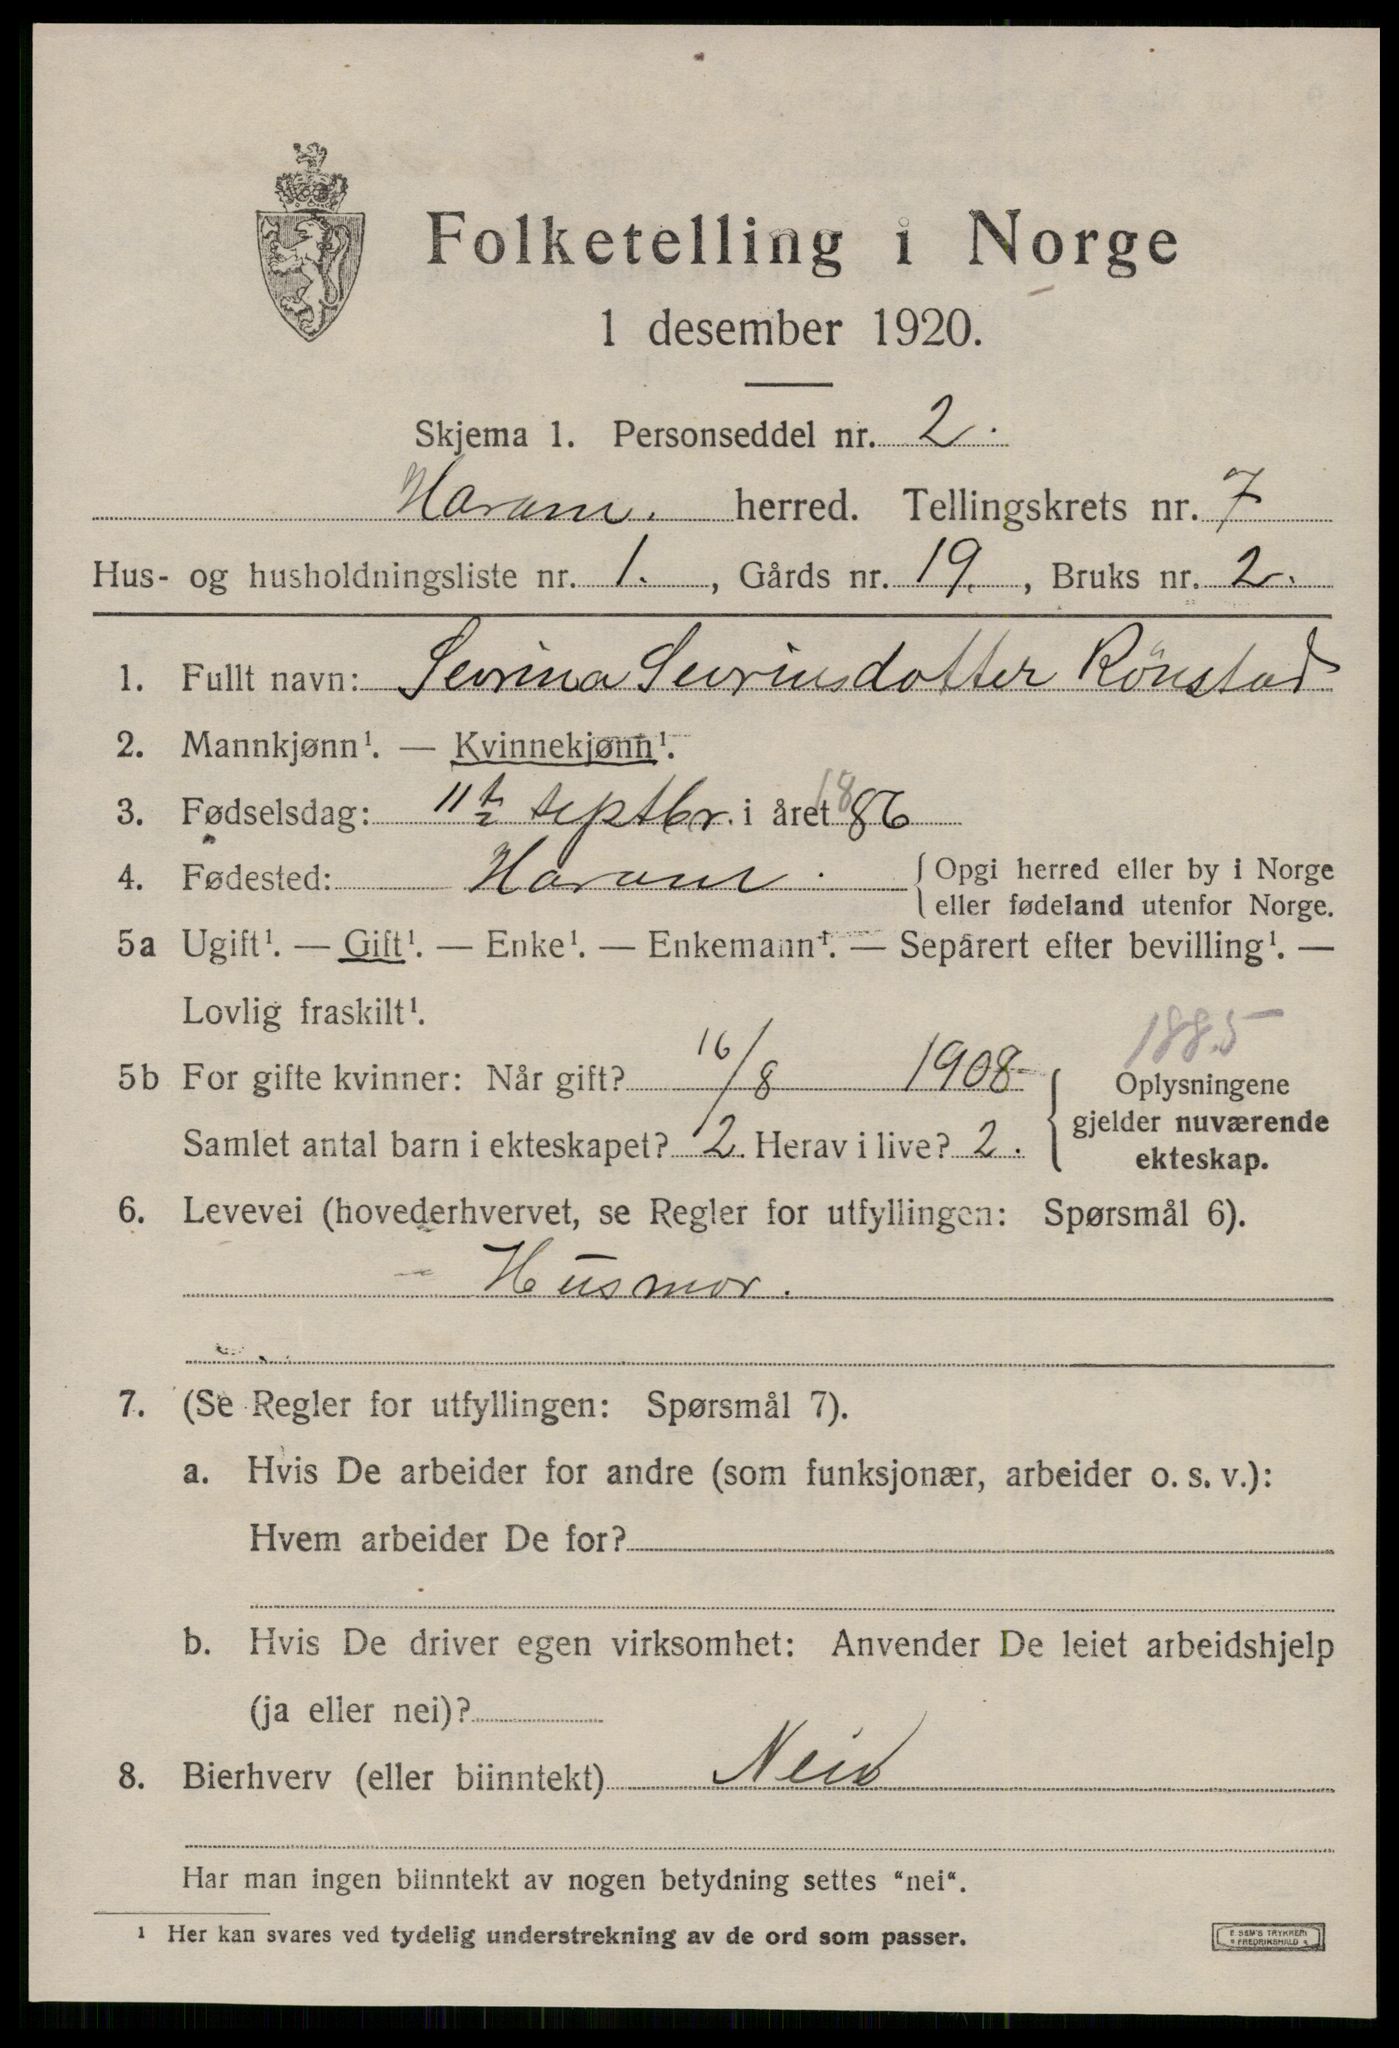 Folketelling i Norge
1 desember 1920.
Skjema 1. Personseddel nr. 2.
Haram. herred. Tellingskrets nr. 7
Hus- og husholdningsliste nr. 1., Gårds nr. 19., Bruks nr. 2.
1. Fullt navn: Sevrina Sevrinsdotter Rönstad
2. Mannkjønn¹. — Kvinnekjønn¹.
3. Fødselsdag: 11te septbr. i året 1886
4. Fødested: Haram. { Opgi herred eller by i Norge
eller fødeland utenfor Norge.
5a Ugift¹. — Gift¹. — Enke¹. — Enkemann¹. — Separert efter bevilling¹. —
Lovlig fraskilt¹.
1885
5b For gifte kvinner: Når gift? 16/8 1908
Samlet antal barn i ekteskapet? 2. Herav i live? 2.
{ Oplysningene
gjelder nuværende
ekteskap.
6. Levevei (hovederhvervet, se Regler for utfyllingen: Spørsmål 6).
Husmor.
7. (Se Regler for utfyllingen: Spørsmål 7).
a. Hvis De arbeider for andre (som funksjonær, arbeider o. s. v.):
Hvem arbeider De for?
b. Hvis De driver egen virksomhet: Anvender De leiet arbeidshjelp
(ja eller nei)?
8. Bierhverv (eller biinntekt) Nei
Har man ingen biinntekt av nogen betydning settes "nei".
¹ Her kan svares ved tydelig understrekning av de ord som passer.
E SEM'S TRYKKERI
FREDRIKSHALD